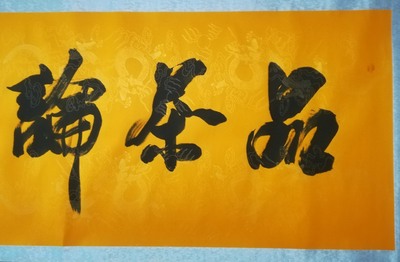 品茶論